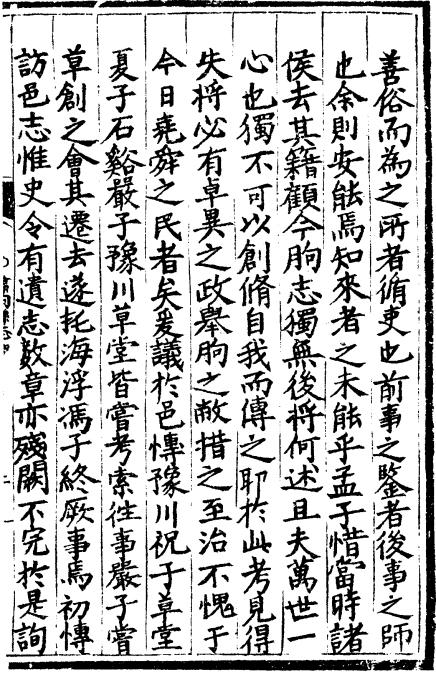 善俗而為之所者循吏也前事之鑒者後事之師
也余則安能焉知來者之未能乎孟子惜當時諸
侯去其籍顧今朐志獨無後將何述且夫萬世一
心也獨不可以創脩自我而傳之耶於此考見得
失將必有卓異之政舉朐之敝措之至治不愧于
今日堯舜之民者矣爰議於邑博豫川祝子草堂
夏子石谿嚴子豫川草堂皆嘗考索往事嚴子嘗
草創之會其遷去遂托海浮馮子終厥事焉初博
訪邑志惟史令有遺志數章亦殘闕不完於是詢